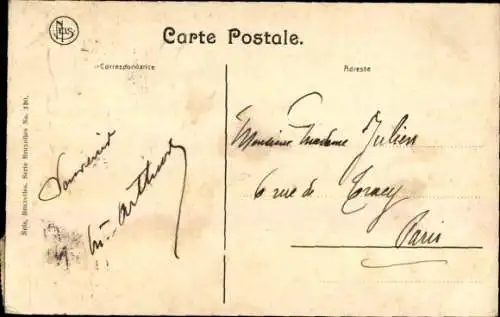 Nels
Carte Postale.
Correspondance
Adresse
Nels, Bruxelles, Serie Bruxelles No. 180.
Souvenir
Mme Arthur
Monsieur Madame Julien
6 rue de Tracy
Paris